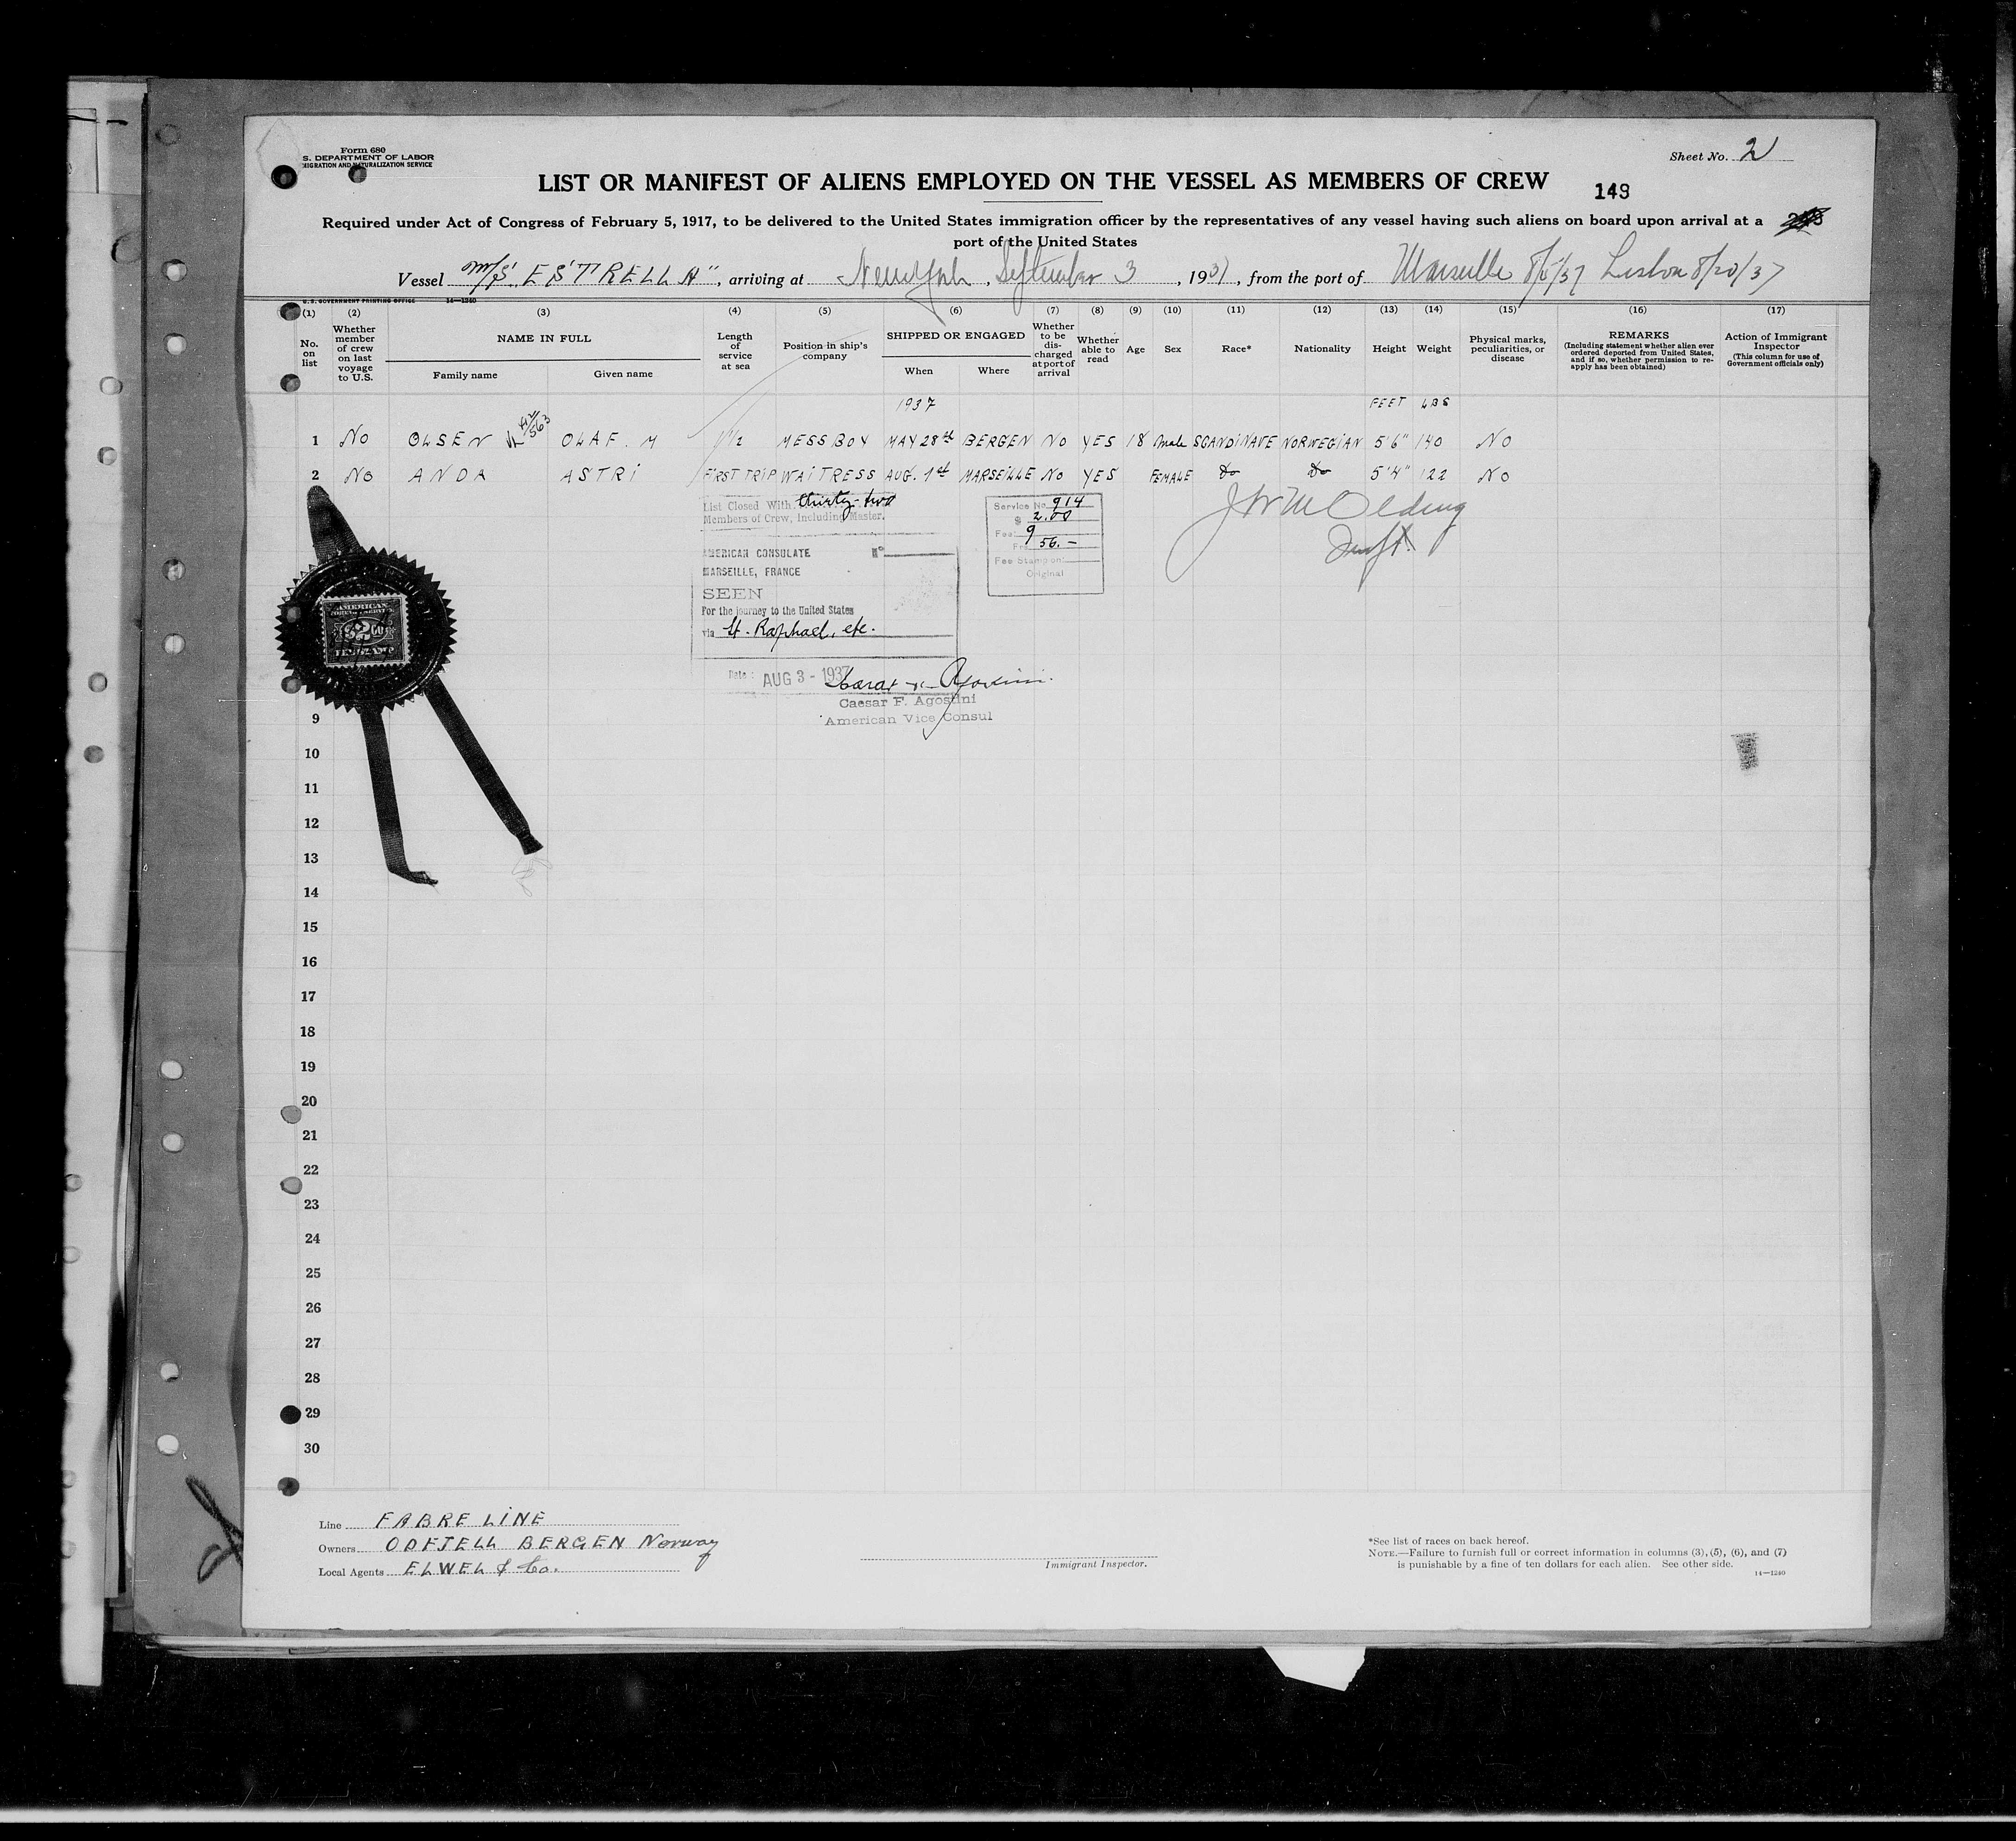 Form 680
S. DEPARTMENT OF LABOR
MIGRATION AND NATURALIZATION SERVICE
Sheet No. 2
LIST OR MANIFEST OF ALIENS EMPLOYED ON THE VESSEL AS MEMBERS OF CREW
149
Required under Act of Congress of February 5, 1917, to be delivered to the United States immigration officer by the representatives of any vessel having such aliens on board upon arrival at a
port of the United States
Vessel M/S "ESTRELLA", arriving at New York, September 3, 1937, from the port of Marseille 8/5/37 Lisbon 8/20/37
U.S. GOVERNMENT PRINTING OFFICE 14—1240
(1) (2) (3) (4) (5) (6) (7) (8) (9) (10) (11) (12) (13) (14) (15) (16) (17)
No. on list
Whether member of crew on last voyage to U.S.
NAME IN FULL
Family name
Given name
Length of service at sea
Position in ship's company
SHIPPED OR ENGAGED
When
Where
Whether to be discharged at port of arrival
Whether able to read
Age
Sex
Race*
Nationality
Height
Weight
Physical marks, peculiarities, or disease
REMARKS
(Including statement whether alien ever ordered deported from United States, and if so, whether permission to reapply has been obtained)
Action of Immigrant Inspector
(This column for use of Government officials only)
1937 FEET LBS
1 No OLSEN 563 OLAF. M 1 1/2 MESSBOY MAY 28th BERGEN NO YES 18 Male SCANDINAVE NORWEGIAN 5'6" 140 NO
2 NO ANDA ASTRI FIRST TRIP WAITRESS AUG. 1st MARSEILLE NO YES FEMALE Do Do 5'4" 122 NO
List Closed With thirty-two
Members of Crew, Including Master.
Service No 914
$ 2.00
Fee 9
Fr. 56.-
Fee Stamp on
Original
AMERICAN CONSULATE N°
MARSEILLE, FRANCE
SEEN
For the journey to the United States
via St. Raphael, etc.
Date: AUG 3 - 1937
Caesar F. Agostini
American Vice Consul
AMERICAN
FEE STAMP
9
10
11
12
13
14
15
16
17
18
19
20
21
22
23
24
25
26
27
28
29
30
Line FABRE LINE
Owners ODFJELL BERGEN Norway
Local Agents ELWEL & Co.
Immigrant Inspector.
*See list of races on back hereof.
NOTE.—Failure to furnish full or correct information in columns (3), (5), (6), and (7)
is punishable by a fine of ten dollars for each alien. See other side.
14—1240